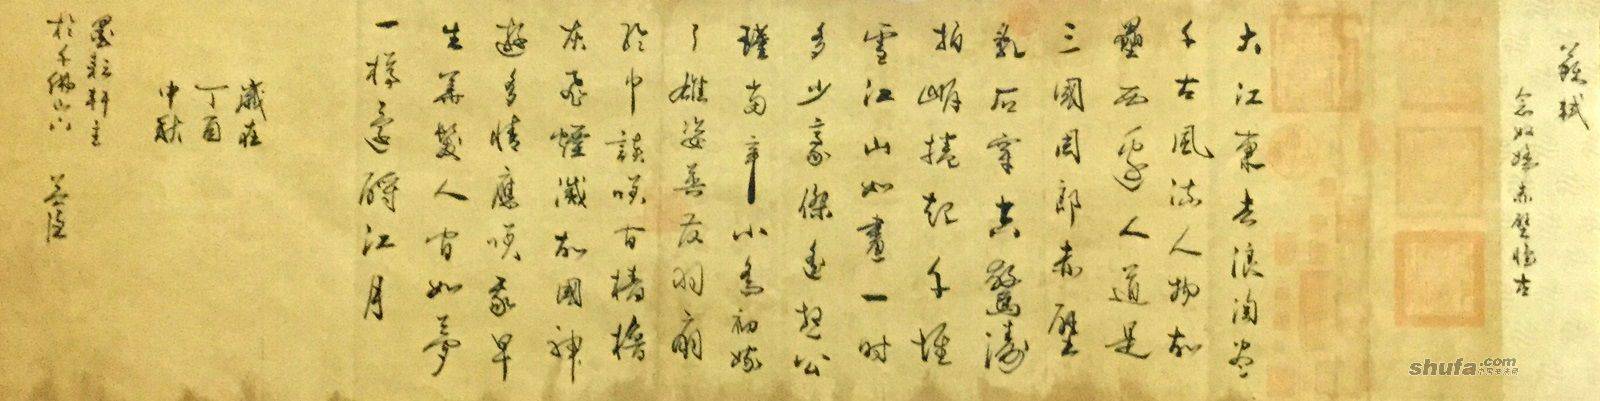 蘇軾
念奴嬌赤壁懷古
大江東去浪淘盡
千古風流人物故
壘西邊人道是
三國周郎赤壁
亂石穿空驚濤
拍岸捲起千堆
雪江山如畫一时
多少豪傑遙想公
瑾當年小喬初嫁
了雄姿英发羽扇
綸巾談笑间檣櫓
灰飛煙滅故國神
遊多情應笑我早
生華髮人间如夢
一樽還酹江月
歲在
丁酉
中秋
墨耘軒主
於千佛山下
shufa.com